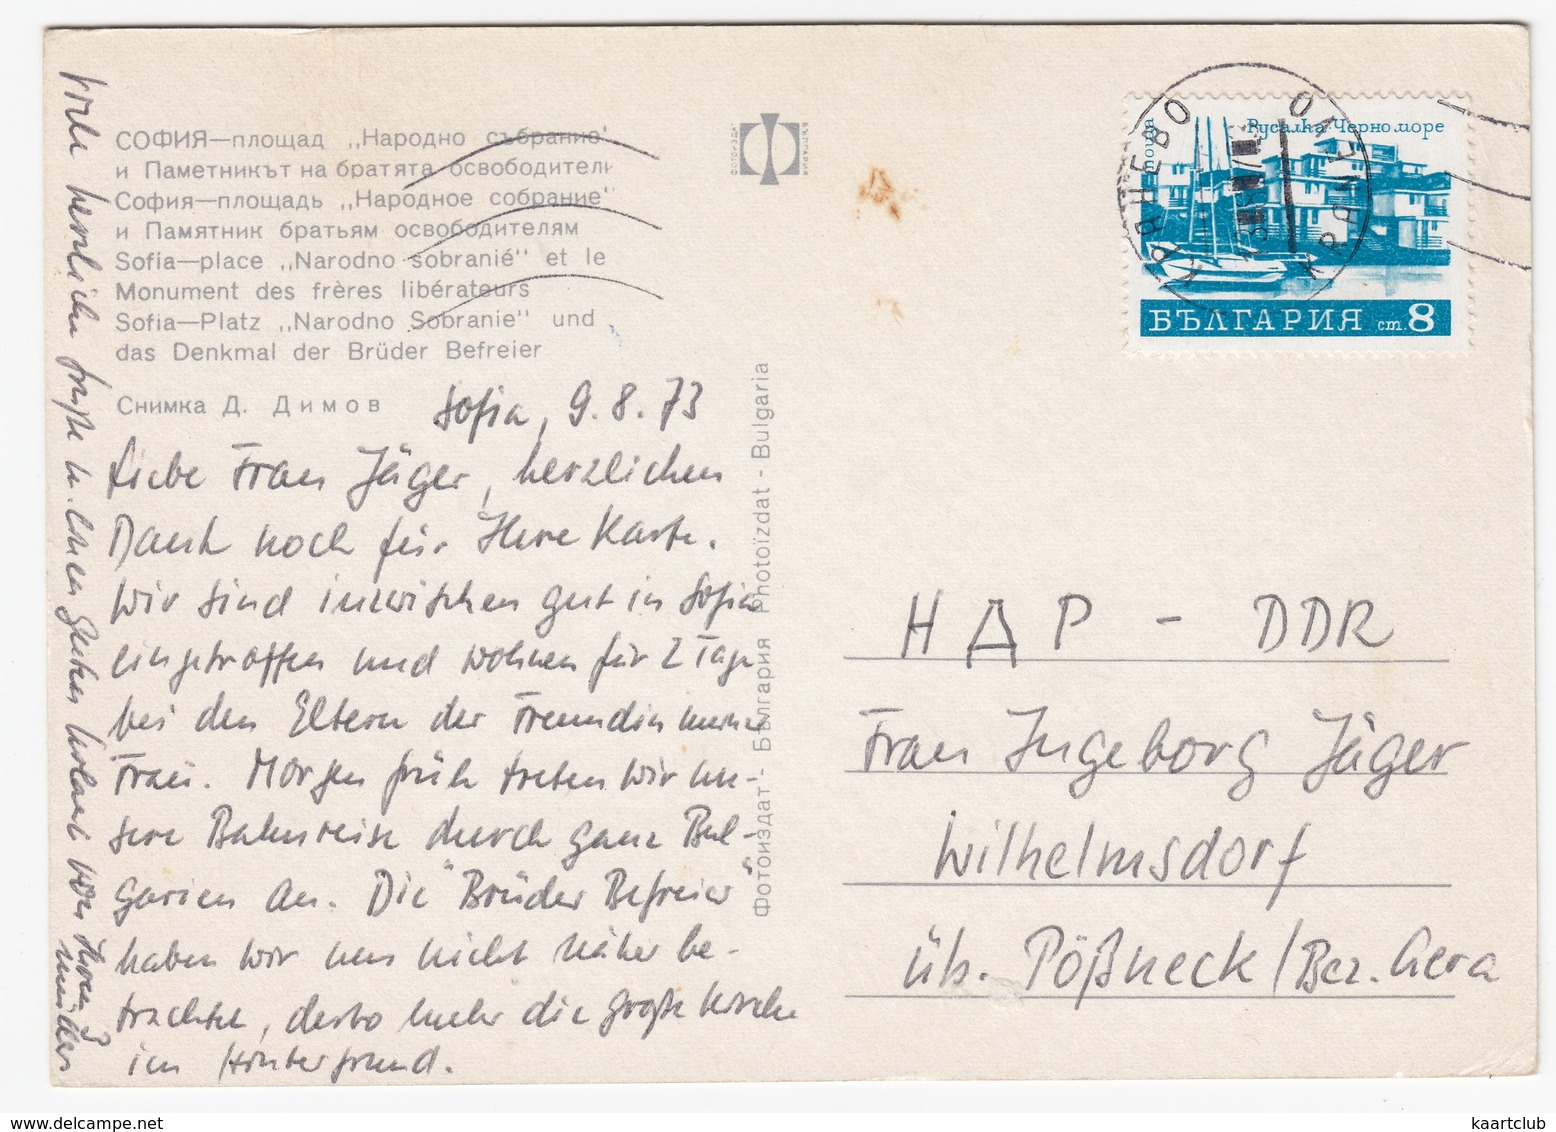 СОФИЯ—площад „Народно събрание"
и Паметникът на братята освободители
София—площадь „Народное собрание"
и Памятник братьям освободителям
Sofia—place „Narodno sobranié" et le
Monument des frères libérateurs
Sofia—Platz „Narodno Sobranie" und
das Denkmal der Brüder Befreier
Снимка Д. Димов
Sofia, 9.8.73
Liebe Frau Jäger, herzlichen
Dank noch für Ihre Karte.
Wir sind inzwischen gut in Sofia
eingetroffen und wohnen für 2 Tage
bei den Eltern der Freundin meiner
Frau. Morgen früh treten wir un-
sere Bahnreise durch ganz Bul-
garien an. Die "Brüder Befreier"
haben wir uns nicht näher be-
trachtet, desto mehr die große Kirche
im Hintergrund.
Viele herzliche Grüße u. einen guten Urlaub von Ihren
Müllers
Фотоиздат - България Photoïzdat - Bulgaria
ФОТОИЗДАТ
БЪЛГАРИЯ
поща
Русалка. Черно море
БЪЛГАРИЯ ст. 8
КРАНЕВО
KRANEVO
НДР - DDR
Frau Ingeborg Jäger
Wilhelmsdorf
üb. Pößneck / Bez. Gera
kaartclub
www.delcampe.net